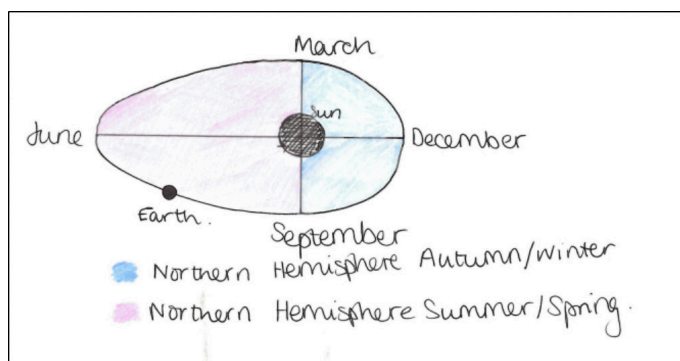 March
Sun
June
December
Earth.
September
Northern Hemisphere Autumn/Winter
Northern Hemisphere Summer/Spring.